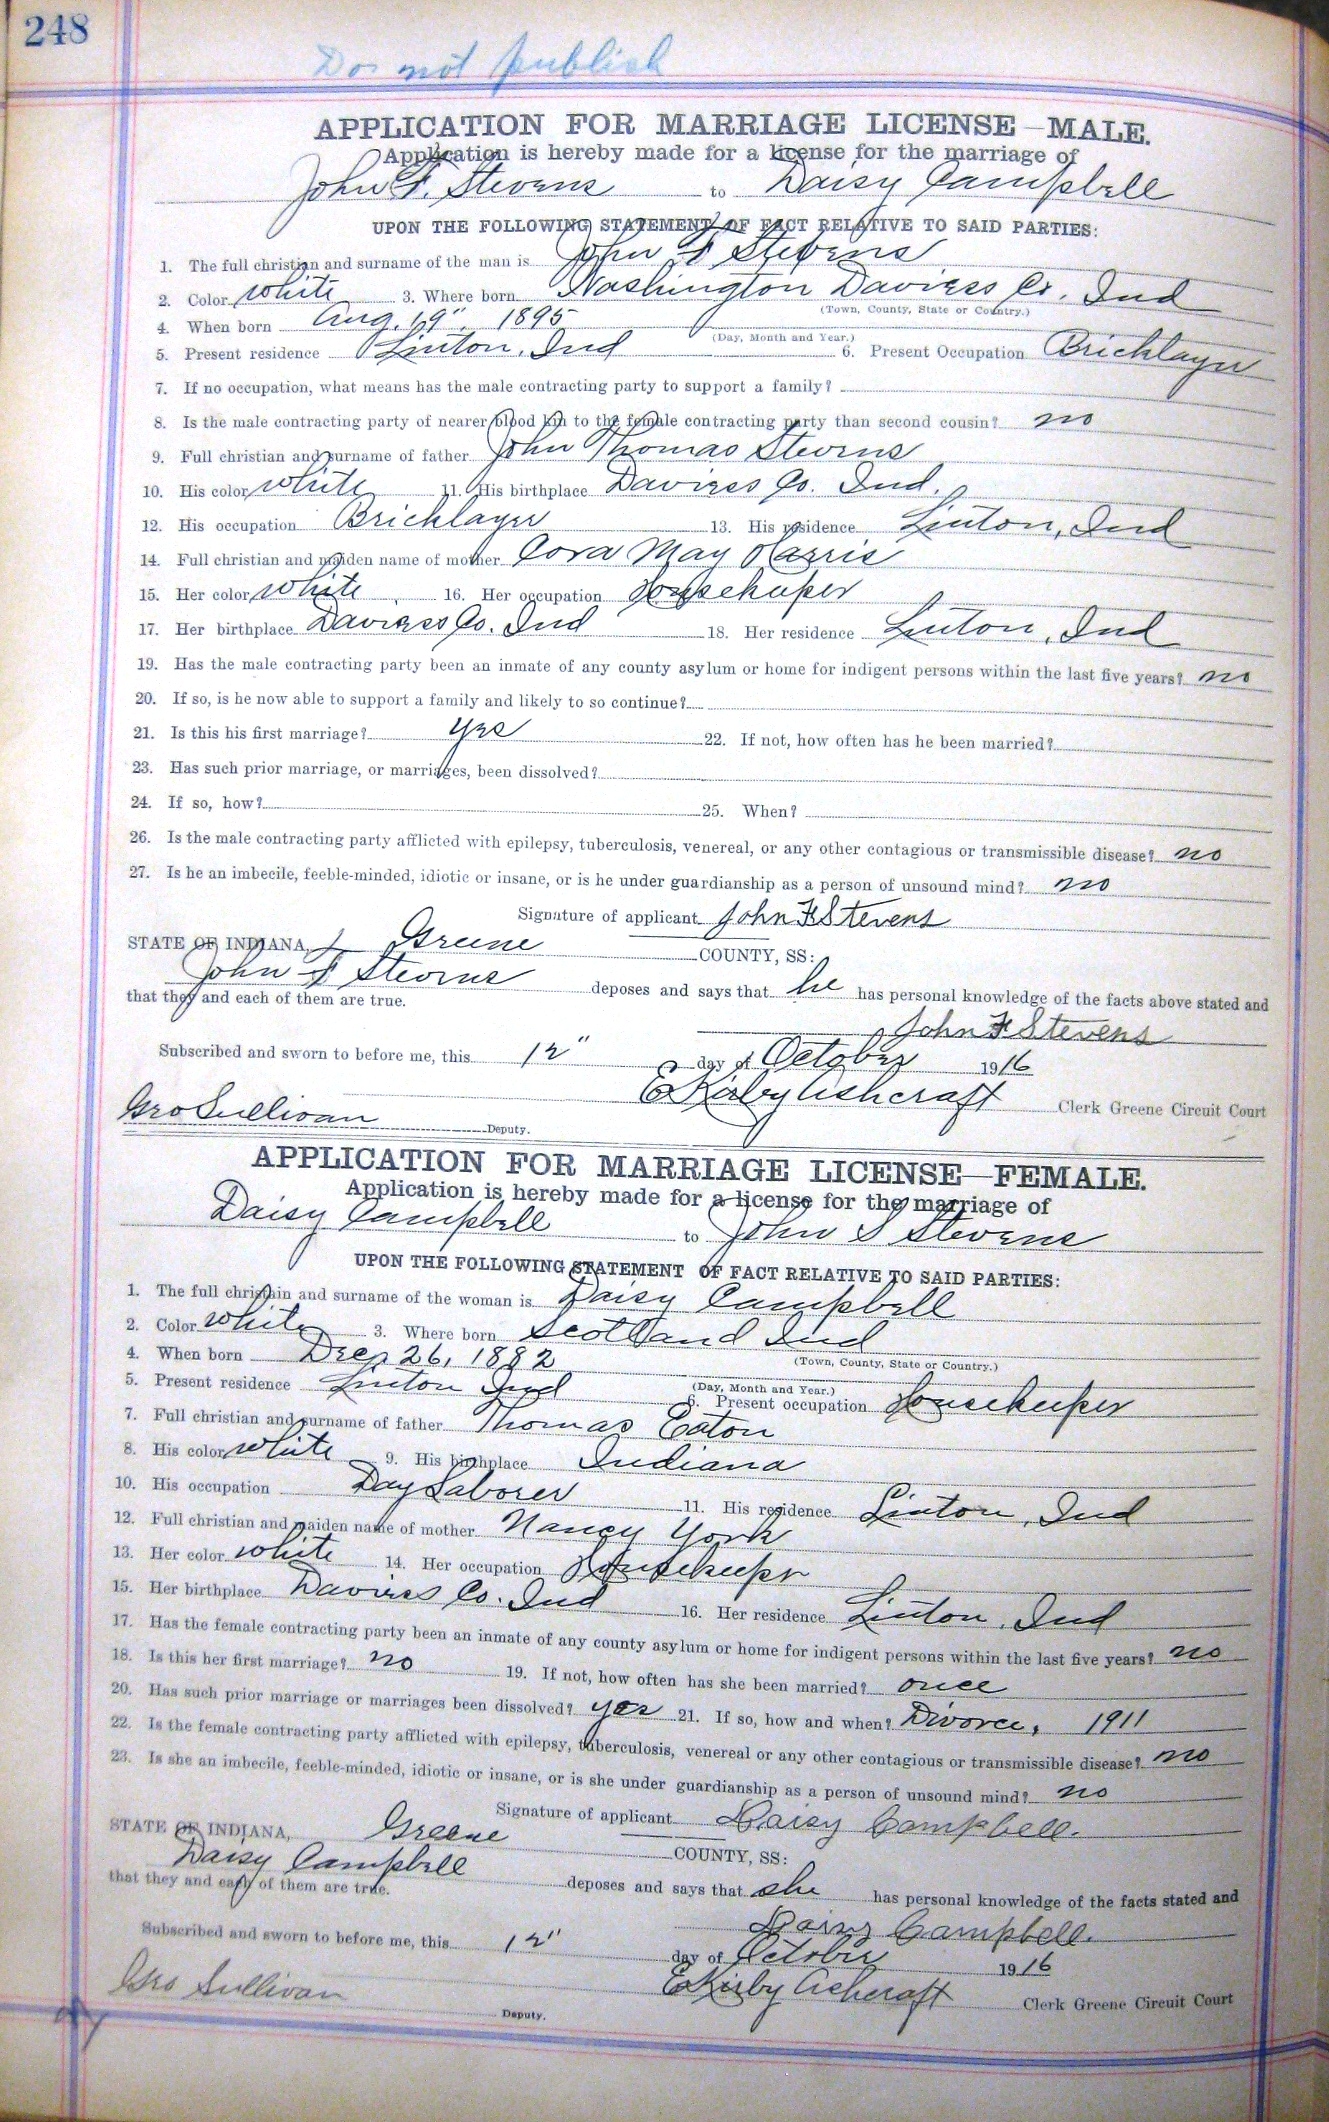 248
Do not publish
APPLICATION FOR MARRIAGE LICENSE—MALE.
Application is hereby made for a license for the marriage of
John F. Stevens to Daisy Campbell
UPON THE FOLLOWING STATEMENT OF FACT RELATIVE TO SAID PARTIES:
1. The full christian and surname of the man is John F Stevens
2. Color white 3. Where born Washington Daviess Co. Ind
(Town, County, State or Country.)
4. When born Aug. 19" 1895
(Day, Month and Year.)
5. Present residence Linton, Ind 6. Present Occupation Bricklayer
7. If no occupation, what means has the male contracting party to support a family?
8. Is the male contracting party of nearer blood kin to the female contracting party than second cousin? no
9. Full christian and surname of father John Thomas Stevens
10. His color white 11. His birthplace Daviess Co. Ind.
12. His occupation Bricklayer 13. His residence Linton, Ind
14. Full christian and maiden name of mother Cora May Harris
15. Her color white 16. Her occupation Housekeeper
17. Her birthplace Daviess Co. Ind 18. Her residence Linton, Ind
19. Has the male contracting party been an inmate of any county asylum or home for indigent persons within the last five years? no
20. If so, is he now able to support a family and likely to so continue?
21. Is this his first marriage? yes 22. If not, how often has he been married?
23. Has such prior marriage, or marriages, been dissolved?
24. If so, how? 25. When?
26. Is the male contracting party afflicted with epilepsy, tuberculosis, venereal, or any other contagious or transmissible disease? no
27. Is he an imbecile, feeble-minded, idiotic or insane, or is he under guardianship as a person of unsound mind? no
Signature of applicant John F Stevens
STATE OF INDIANA, Greene COUNTY, SS:
John F Stevens deposes and says that he has personal knowledge of the facts above stated and
that they and each of them are true.
John F Stevens
Subscribed and sworn to before me, this 12" day of October 1916
E Kirby Ashcraft Clerk Greene Circuit Court
Geo Sullivan Deputy.
APPLICATION FOR MARRIAGE LICENSE—FEMALE.
Application is hereby made for a license for the marriage of
Daisy Campbell to John S Stevens
UPON THE FOLLOWING STATEMENT OF FACT RELATIVE TO SAID PARTIES:
1. The full christain and surname of the woman is Daisy Campbell
2. Color white 3. Where born Scotland Ind
(Town, County, State or Country.)
4. When born Dec. 26, 1882
(Day, Month and Year.)
5. Present residence Linton Ind 6. Present occupation Housekeeper
7. Full christian and surname of father Thomas Eaton
8. His color white 9. His birthplace Indiana
10. His occupation Day Laborer 11. His residence Linton, Ind
12. Full christian and maiden name of mother Nancy York
13. Her color white 14. Her occupation Housekeeper
15. Her birthplace Daviess Co. Ind 16. Her residence Linton, Ind
17. Has the female contracting party been an inmate of any county asylum or home for indigent persons within the last five years? no
18. Is this her first marriage? no 19. If not, how often has she been married? once
20. Has such prior marriage or marriages been dissolved? yes 21. If so, how and when? Divorce, 1911
22. Is the female contracting party afflicted with epilepsy, tuberculosis, venereal or any other contagious or transmissible disease? no
23. Is she an imbecile, feeble-minded, idiotic or insane, or is she under guardianship as a person of unsound mind? no
Signature of applicant Daisy Campbell.
STATE OF INDIANA, Greene COUNTY, SS:
Daisy Campbell deposes and says that she has personal knowledge of the facts stated and
that they and each of them are true.
Daisy Campbell.
Subscribed and sworn to before me, this 12" day of October 1916
E Kirby Ashcraft Clerk Greene Circuit Court
Geo Sullivan Deputy.